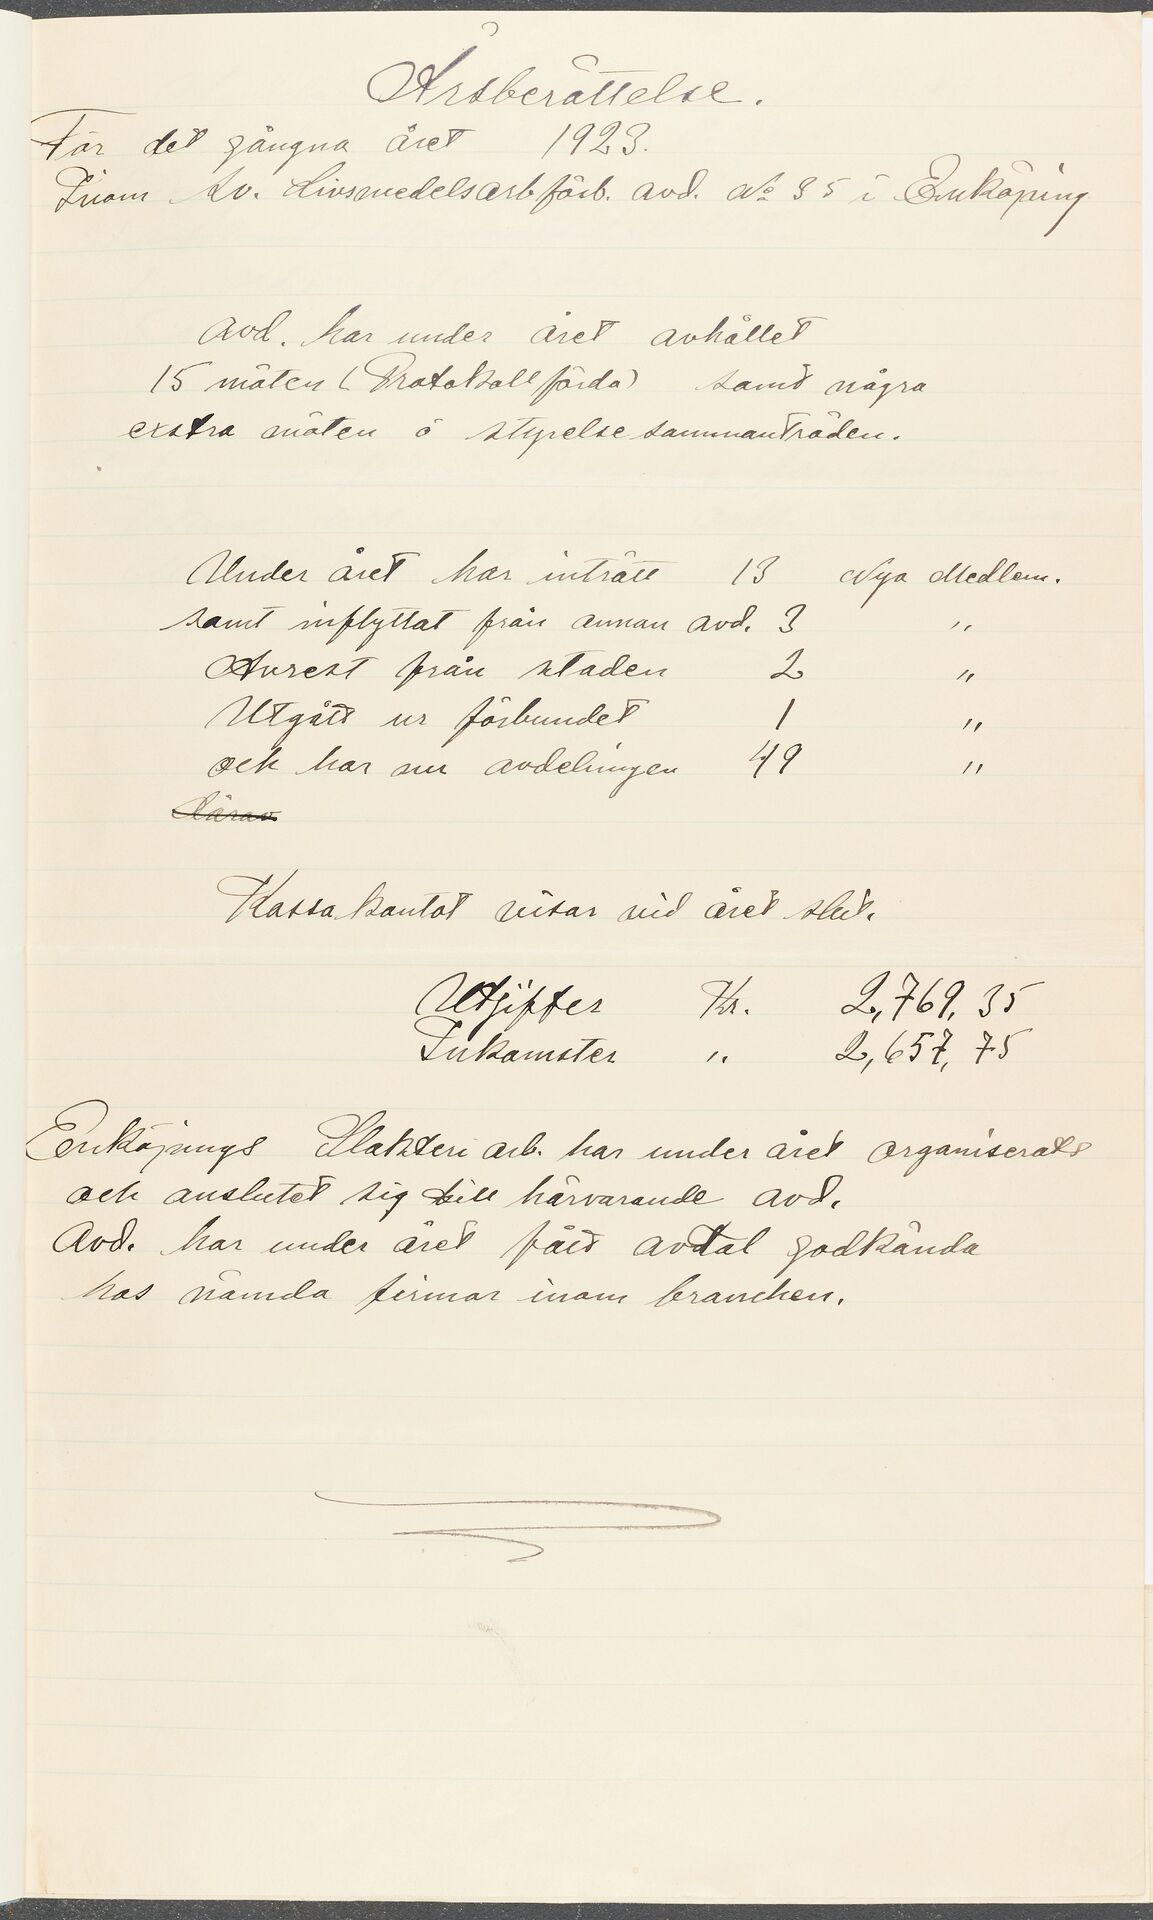 Årsberättelse.
För det gångna året 1923.
Inom Sv. Livsmedelsarb.förb. avd. No 35 i Enköping
Avd. har under året avhållet
15 möten (Protokollförda) samt några
exstra möten o styrelsesammanträden.
Under året har inträtt 13 Nya Medlem.
samt inflyttat från annan avd. 3 "
Avrest från staden 2 "
Utgått ur förbundet 1 "
och har nu avdelingen 49 "
Därav
Kassakontot visar vid året slut.
Utgifter Kr. 2,769,35
Inkomster " 2,657,75
Enköpings Slakteriarb. har under året organiserats
och anslutet sig till härvarande avd.
Avd. har under året fått avtal godkända
hos nämda firmor inom branchen.